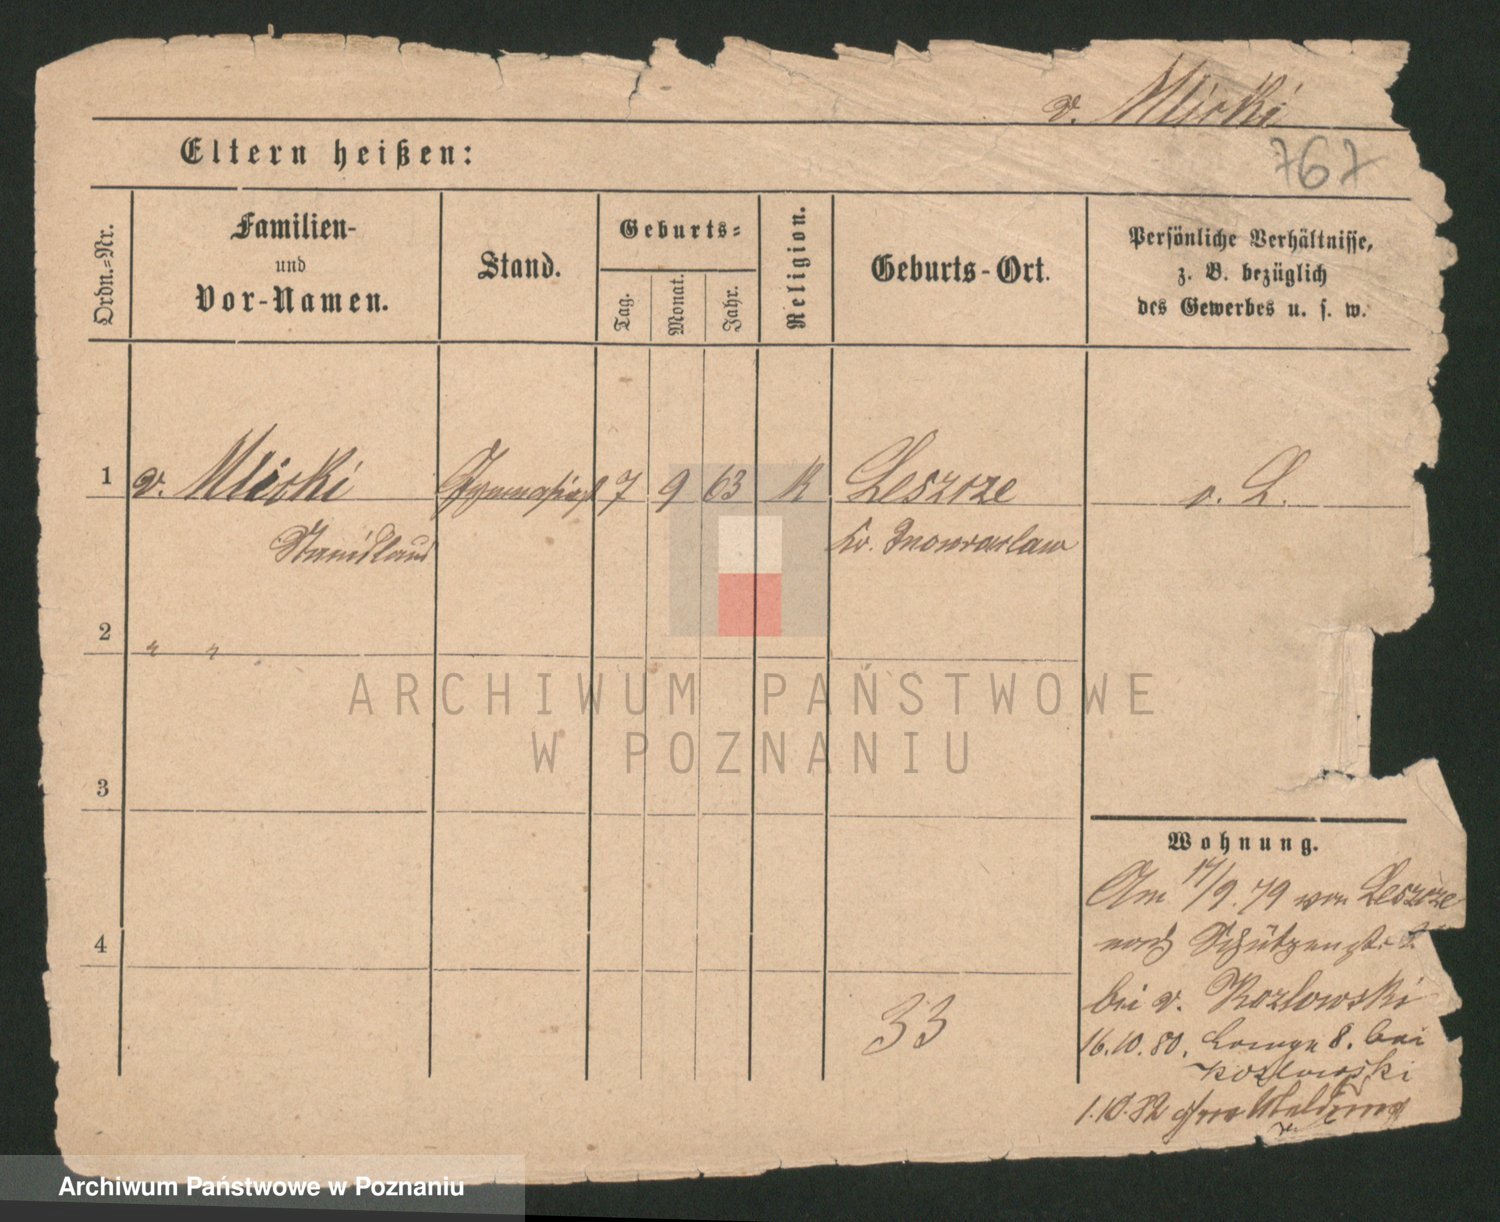 v. Mlicki
Eltern heißen:
767
Ordn.-Nr.
Familien-
und
Vor-Namen.
Stand.
Geburts-
Tag.
Monat.
Jahr.
Religion.
Geburts-Ort.
Persönliche Verhältnisse,
z. B. bezüglich
des Gewerbes u. s. w.
1 v. Mlicki Gymnasiast 7 9 63 K Leszcze
Stanislaus Kr. Inowraclaw
2 " "
3
4
33
Wohnung.
Am 17/9.79 von Leszcze
nach Schützenstr.
bei v. Kozlowski
16.10.80. Lange 8. bei
Kozlowski
1.10.82 ohne Meldung
ARCHIWUM PAŃSTWOWE
W POZNANIU
Archiwum Państwowe w Poznaniu